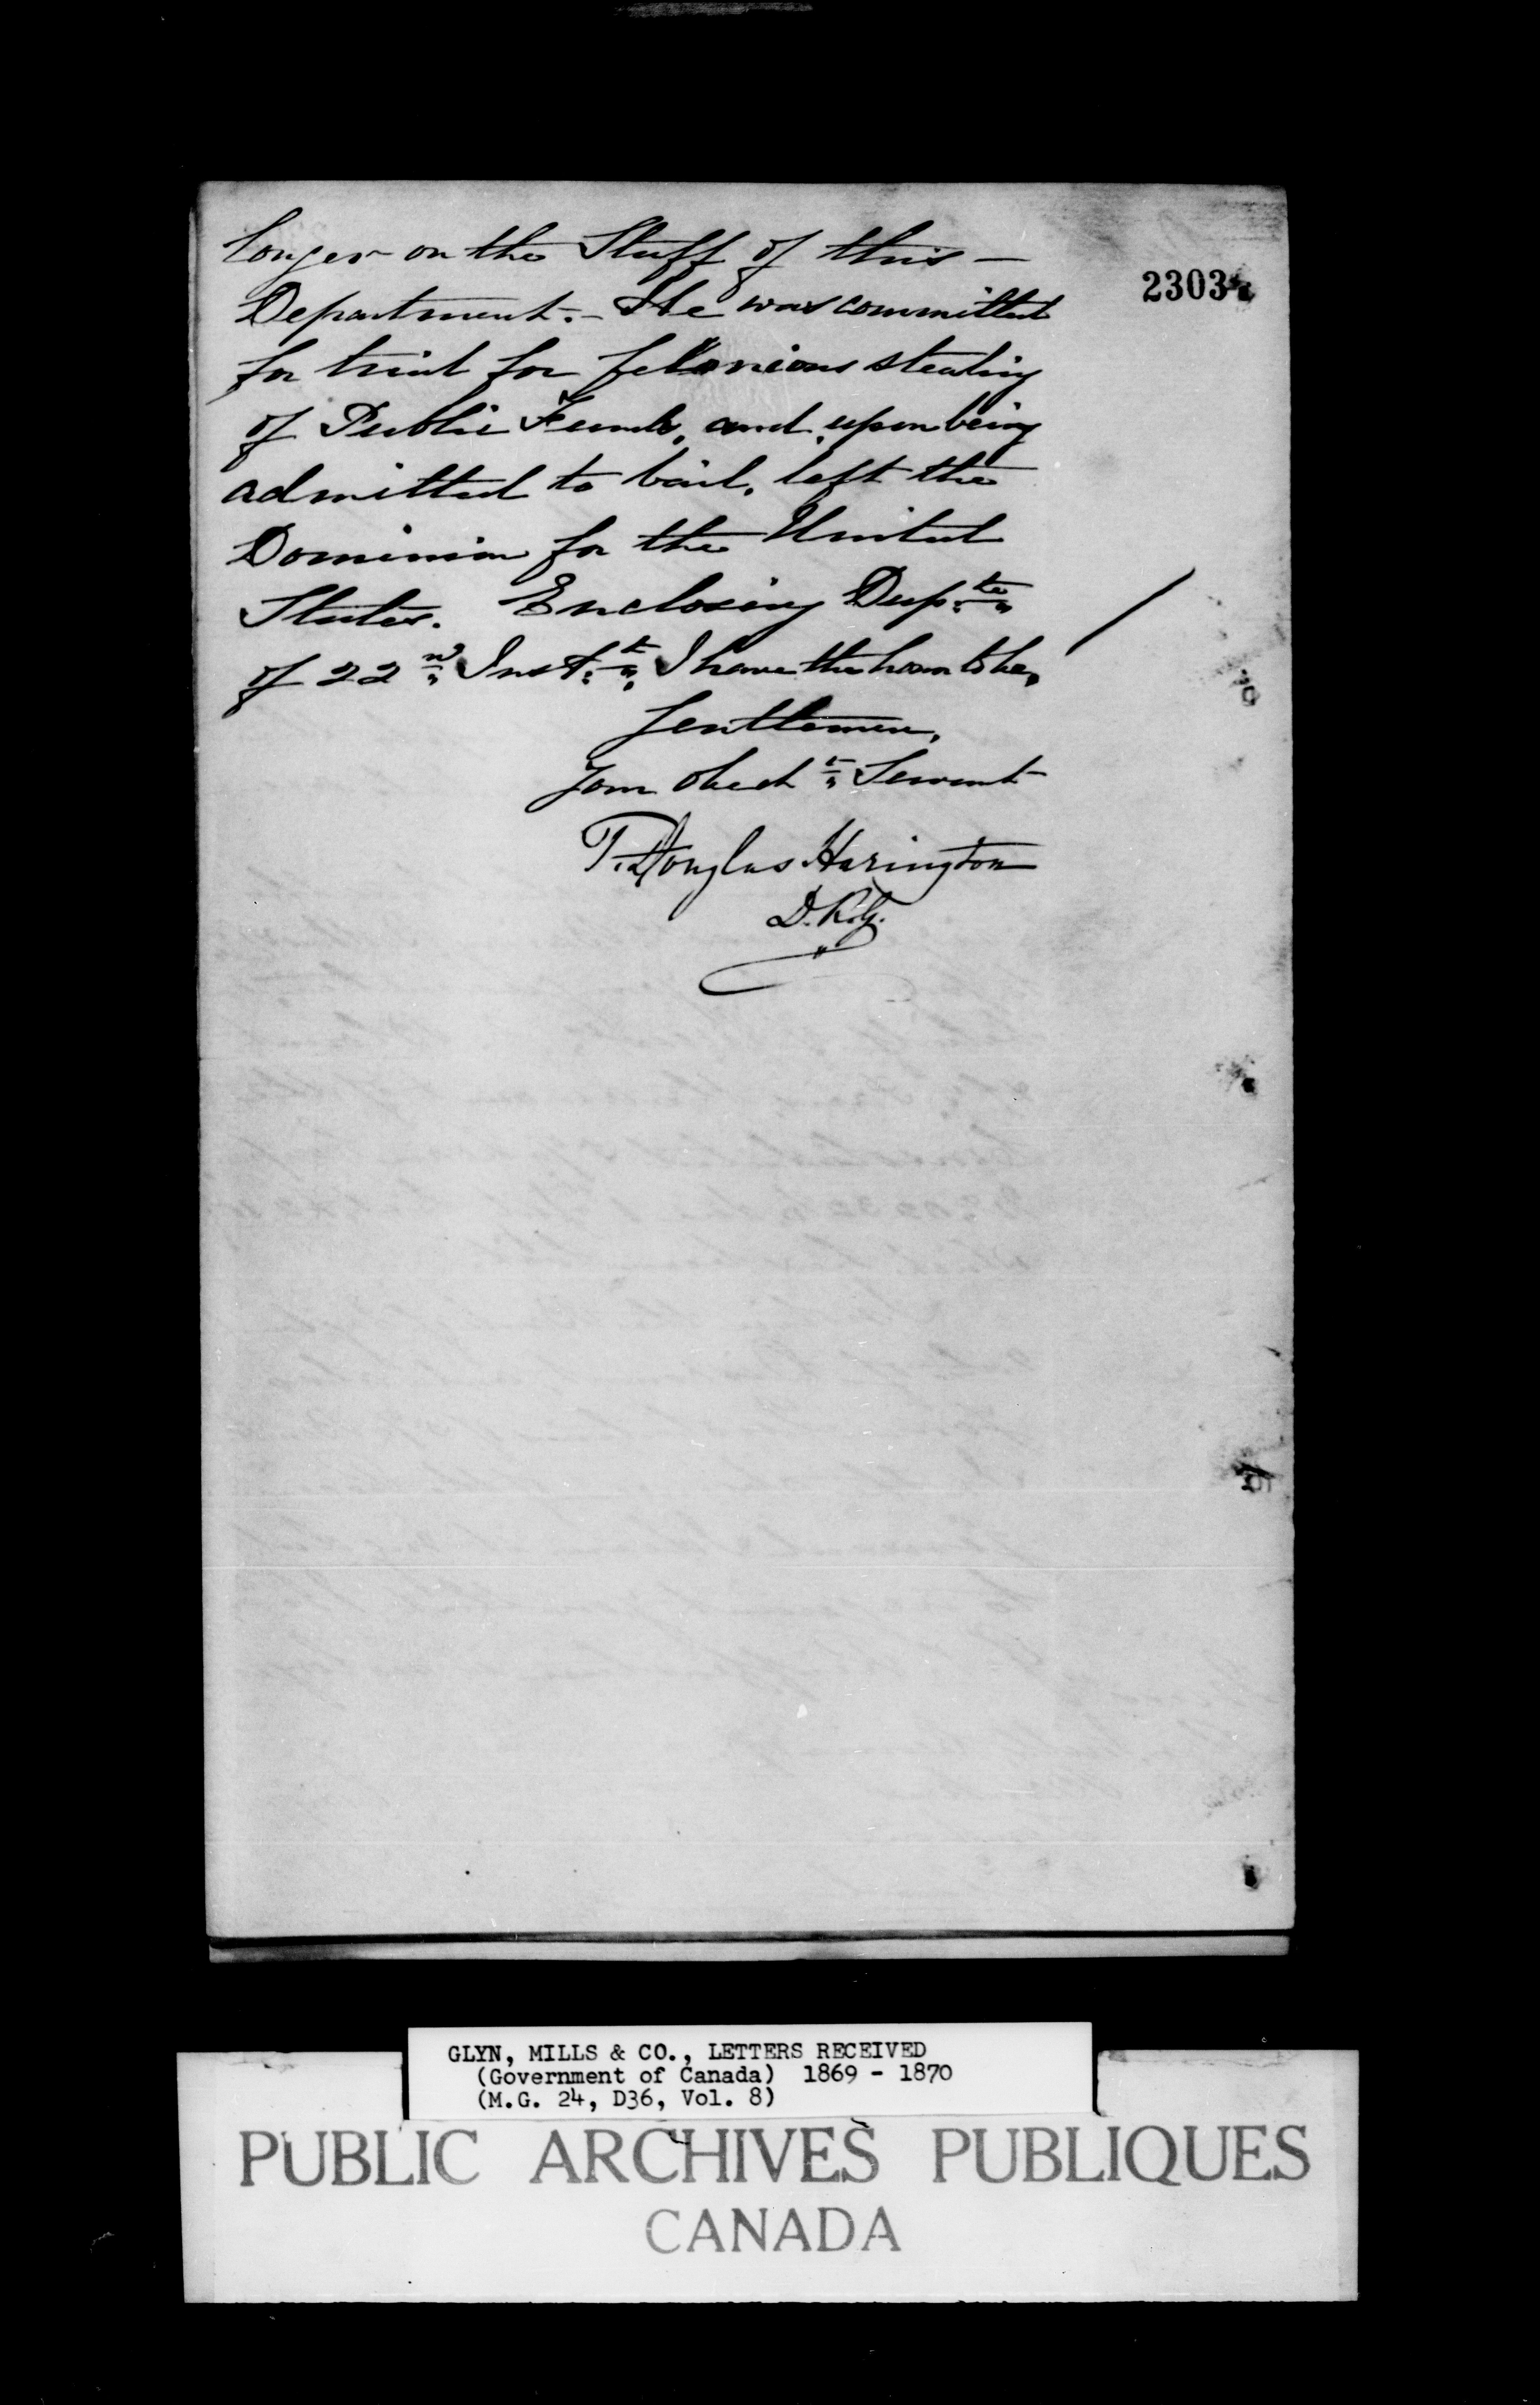 2303
longer on the Staff of this —
Department. — He was committed
for trial for felonious stealing
of Public Funds, and, upon being
admitted to bail, left the
Dominion for the United
States. Enclosing Dup.te
of 22nd Inst.t, I have the honor to be,
Gentlemen,
Your obed.t Servant
T. Douglas Harington
D.R.G.
GLYN, MILLS & CO., LETTERS RECEIVED
(Government of Canada) 1869 - 1870
(M.G. 24, D36, Vol. 8)
PUBLIC ARCHIVES PUBLIQUES
CANADA